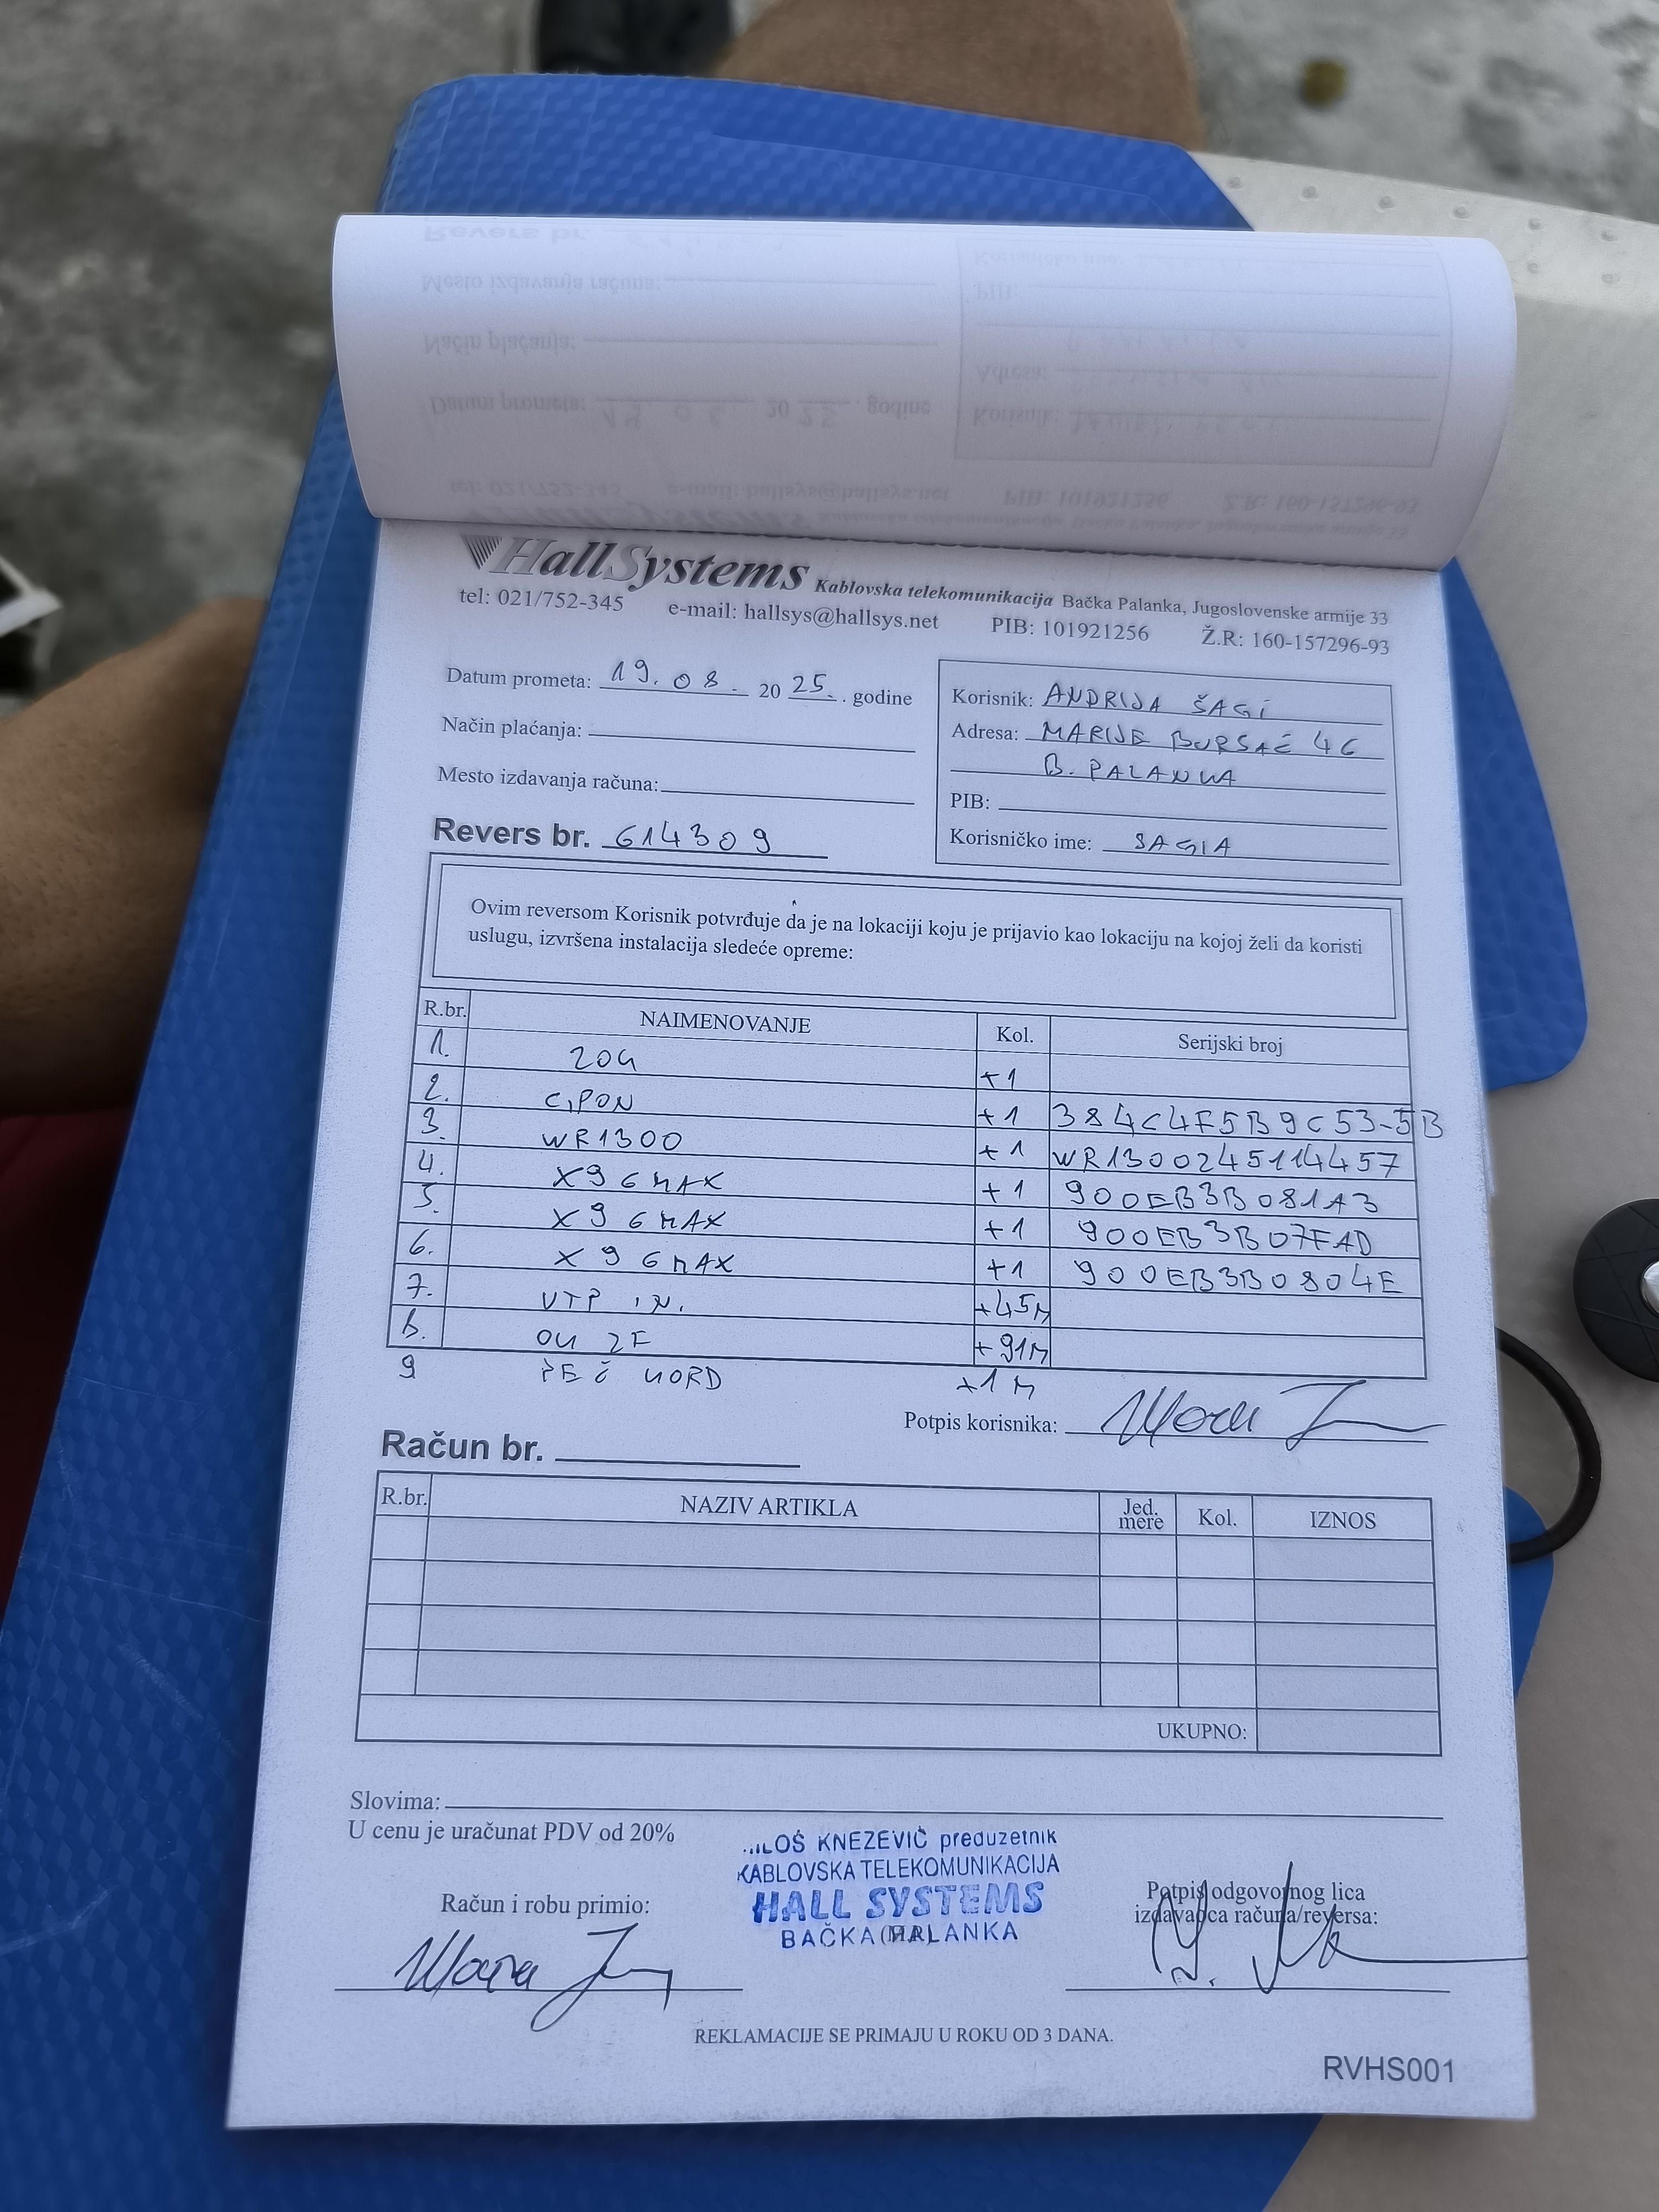 HallSystems Kablovska telekomunikacija Bačka Palanka, Jugoslovenske armije 33
tel: 021/752-345 e-mail: hallsys@hallsys.net PIB: 101921256 Ž.R: 160-157296-93
Datum prometa: 19.08. 20 25. . godine
Način plaćanja:
Mesto izdavanja računa:
Revers br. 614309
Korisnik: ANDRIJA ŠAGI
Adresa: MARIJE BURSAĆ 46
B. PALANKA
PIB:
Korisničko ime: SAGIA
Ovim reversom Korisnik potvrđuje da je na lokaciji koju je prijavio kao lokaciju na kojoj želi da koristi
uslugu, izvršena instalacija sledeće opreme:
R.br. NAIMENOVANJE Kol. Serijski broj
1. ZOK +1
2. CIPON +1 384C4F5B9C53-5B
3. WR1300 +1 WR1300245114457
4. X96MAX +1 900EB3B081A3
5. X96MAX +1 900EB3B07FAD
6. X96MAX +1 900EB3B0804E
7. UTP IN. +45M
8. OK 2F +91M
9 PEČ KORD +1M
Potpis korisnika:
Račun br.
R.br. NAZIV ARTIKLA Jed. mere Kol. IZNOS
UKUPNO:
Slovima:
U cenu je uračunat PDV od 20%
KNEZEVIĆ preduzetnik
KABLOVSKA TELEKOMUNIKACIJA
HALL SYSTEMS
BAČKA PALANKA
Račun i robu primio:
Potpis odgovornog lica
izdavaoca računa/reversa:
REKLAMACIJE SE PRIMAJU U ROKU OD 3 DANA.
RVHS001